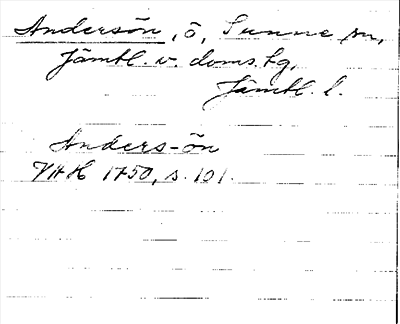 Andersön, ö, Sunne sn,
Jämtl. v. doms.hg,
Jämtl. l.
Anders-ön
VAH 1750, s. 101.